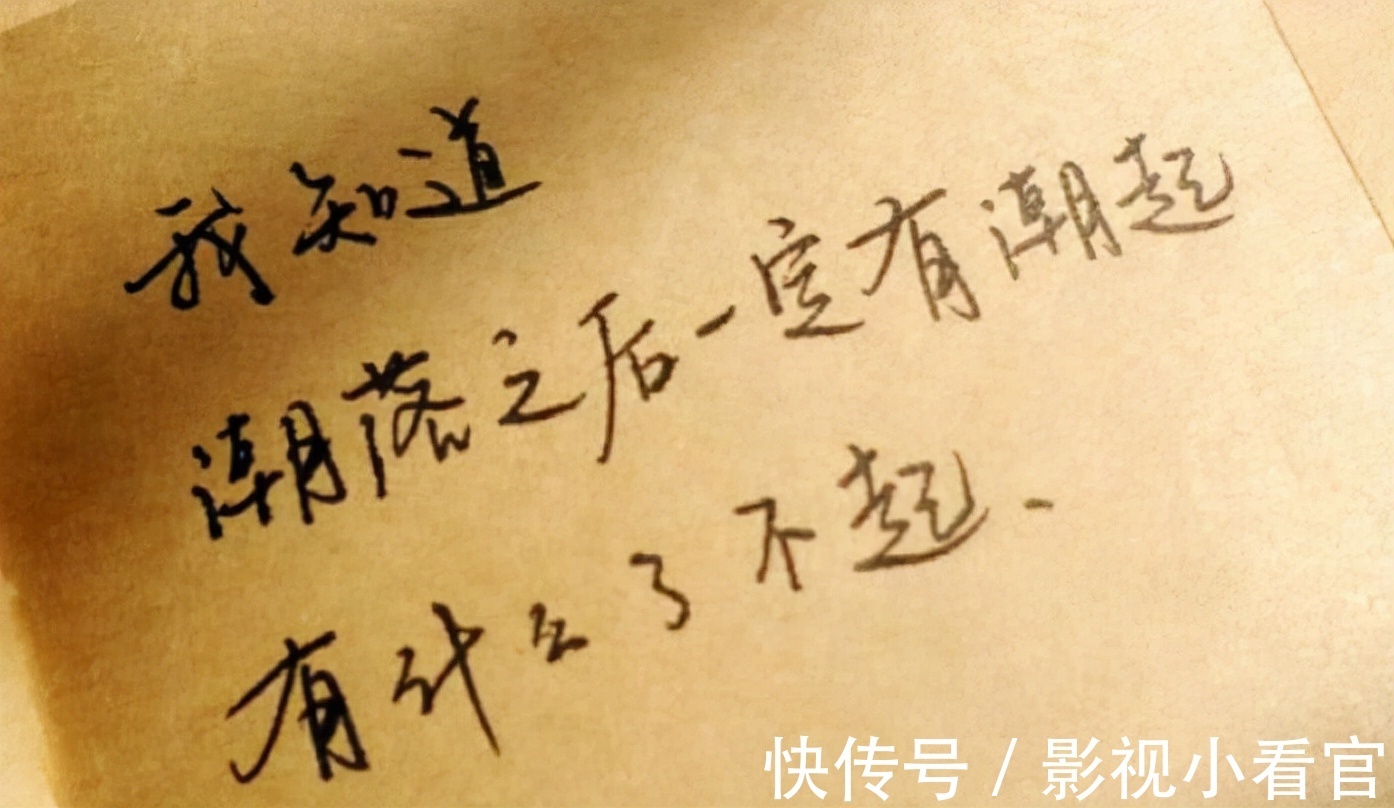 我知道
潮落之后一定有潮起
有什么了不起.
快传号/影视小看官